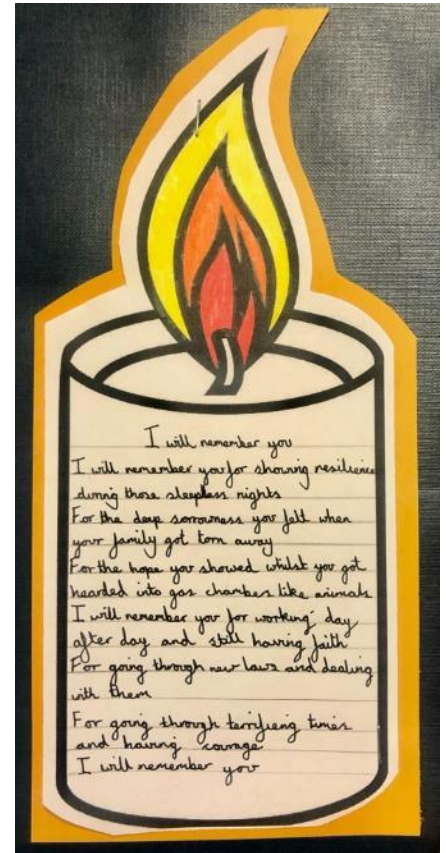 I will remember you
I will remember you for showing resilience
during those sleepless nights
For the deep sorrowness you felt when
your family got torn away
For the hope you showed whilst you got
hearded into gas chambers like animals
I will remember you for working day
after day and still having faith
For going through new laws and dealing
with them
For going through terrifieing times
and having courage
I will remember you